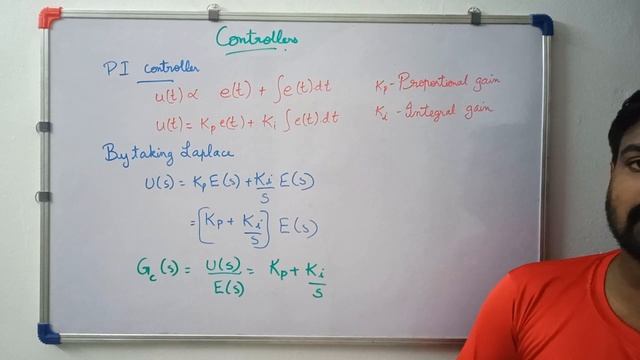 Controllers
PI controller
u(t) ∝ e(t) + ∫e(t)dt
Kp - Proportional gain
u(t) = Kp e(t) + Ki ∫e(t)dt
Ki - Integral gain
By taking Laplace
U(s) = KpE(s) + Ki/s E(s)
= [Kp + Ki/s] E(s)
Gc(s) = U(s)/E(s) = Kp + Ki/s